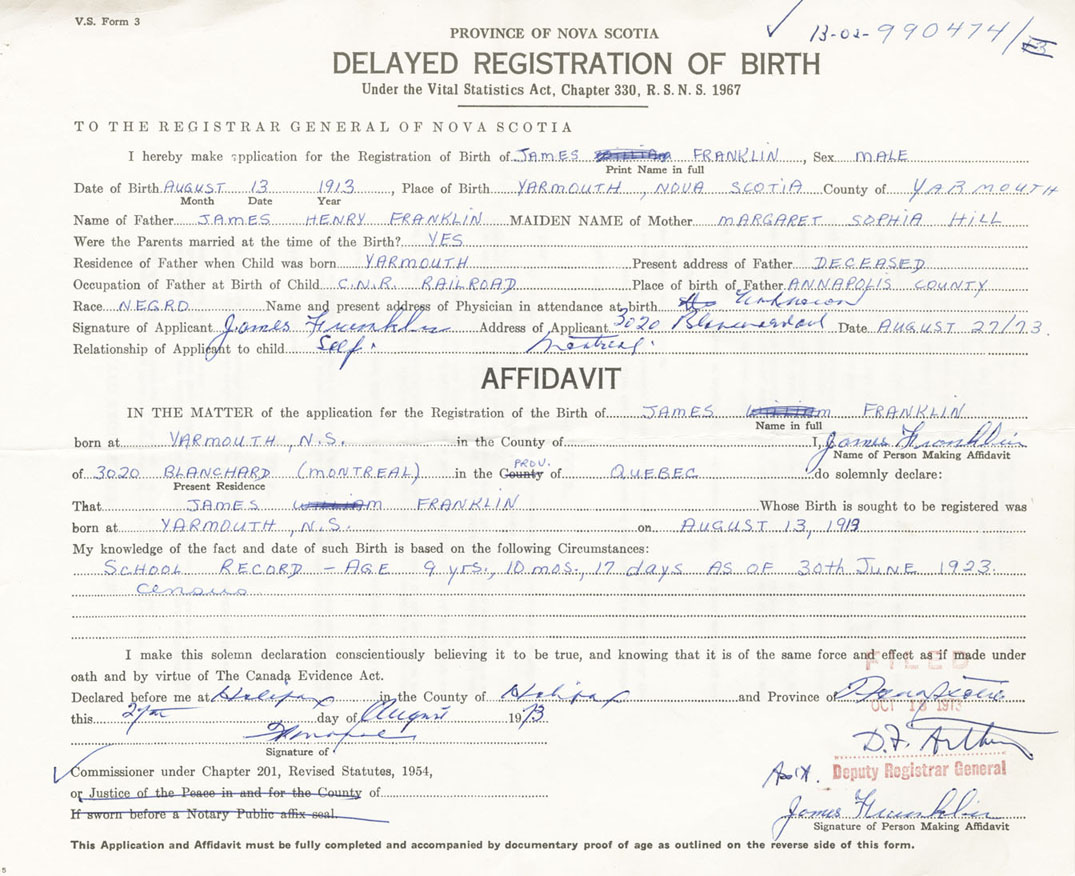 V.S. Form 3
13-02-990474/
PROVINCE OF NOVA SCOTIA
DELAYED REGISTRATION OF BIRTH
Under the Vital Statistics Act, Chapter 330, R. S. N. S. 1967
TO THE REGISTRAR GENERAL OF NOVA SCOTIA
I hereby make application for the Registration of Birth of JAMES William FRANKLIN, Sex MALE
Print Name in full
Date of Birth AUGUST 13 1913, Place of Birth YARMOUTH, NOVA SCOTIA County of YARMOUTH
Month Date Year
Name of Father JAMES HENRY FRANKLIN MAIDEN NAME of Mother MARGARET SOPHIA HILL
Were the Parents married at the time of the Birth? YES
Residence of Father when Child was born YARMOUTH Present address of Father DECEASED
Occupation of Father at Birth of Child C.N.R. RAILROAD Place of birth of Father ANNAPOLIS COUNTY
Race NEGRO Name and present address of Physician in attendance at birth Unknown
Signature of Applicant James Franklin Address of Applicant 3020 Date AUGUST 27/73.
Relationship of Applicant to child Self. Montreal.
AFFIDAVIT
IN THE MATTER of the application for the Registration of the Birth of JAMES William FRANKLIN
Name in full
born at YARMOUTH, N.S. in the County of I, James Franklin
Name of Person Making Affidavit
of 3020 BLANCHARD (MONTREAL) in the County PROV. of QUEBEC do solemnly declare:
Present Residence
That JAMES William FRANKLIN Whose Birth is sought to be registered was
born at YARMOUTH, N.S. on AUGUST 13, 1913
My knowledge of the fact and date of such Birth is based on the following Circumstances:
SCHOOL RECORD - AGE 9 yrs., 10 mos., 17 days AS OF 30th JUNE 1923.
Census
I make this solemn declaration conscientiously believing it to be true, and knowing that it is of the same force and effect as if made under
oath and by virtue of The Canada Evidence Act.
FILED
Declared before me at Halifax in the County of Halifax and Province of Nova Scotia
OCT 18 1973
this 27th day of August 1973
D.F. Arthur
Signature of
Commissioner under Chapter 201, Revised Statutes, 1954,
Ass't. Deputy Registrar General
or Justice of the Peace in and for the County of
James Franklin
If sworn before a Notary Public affix seal.
Signature of Person Making Affidavit
This Application and Affidavit must be fully completed and accompanied by documentary proof of age as outlined on the reverse side of this form.
5